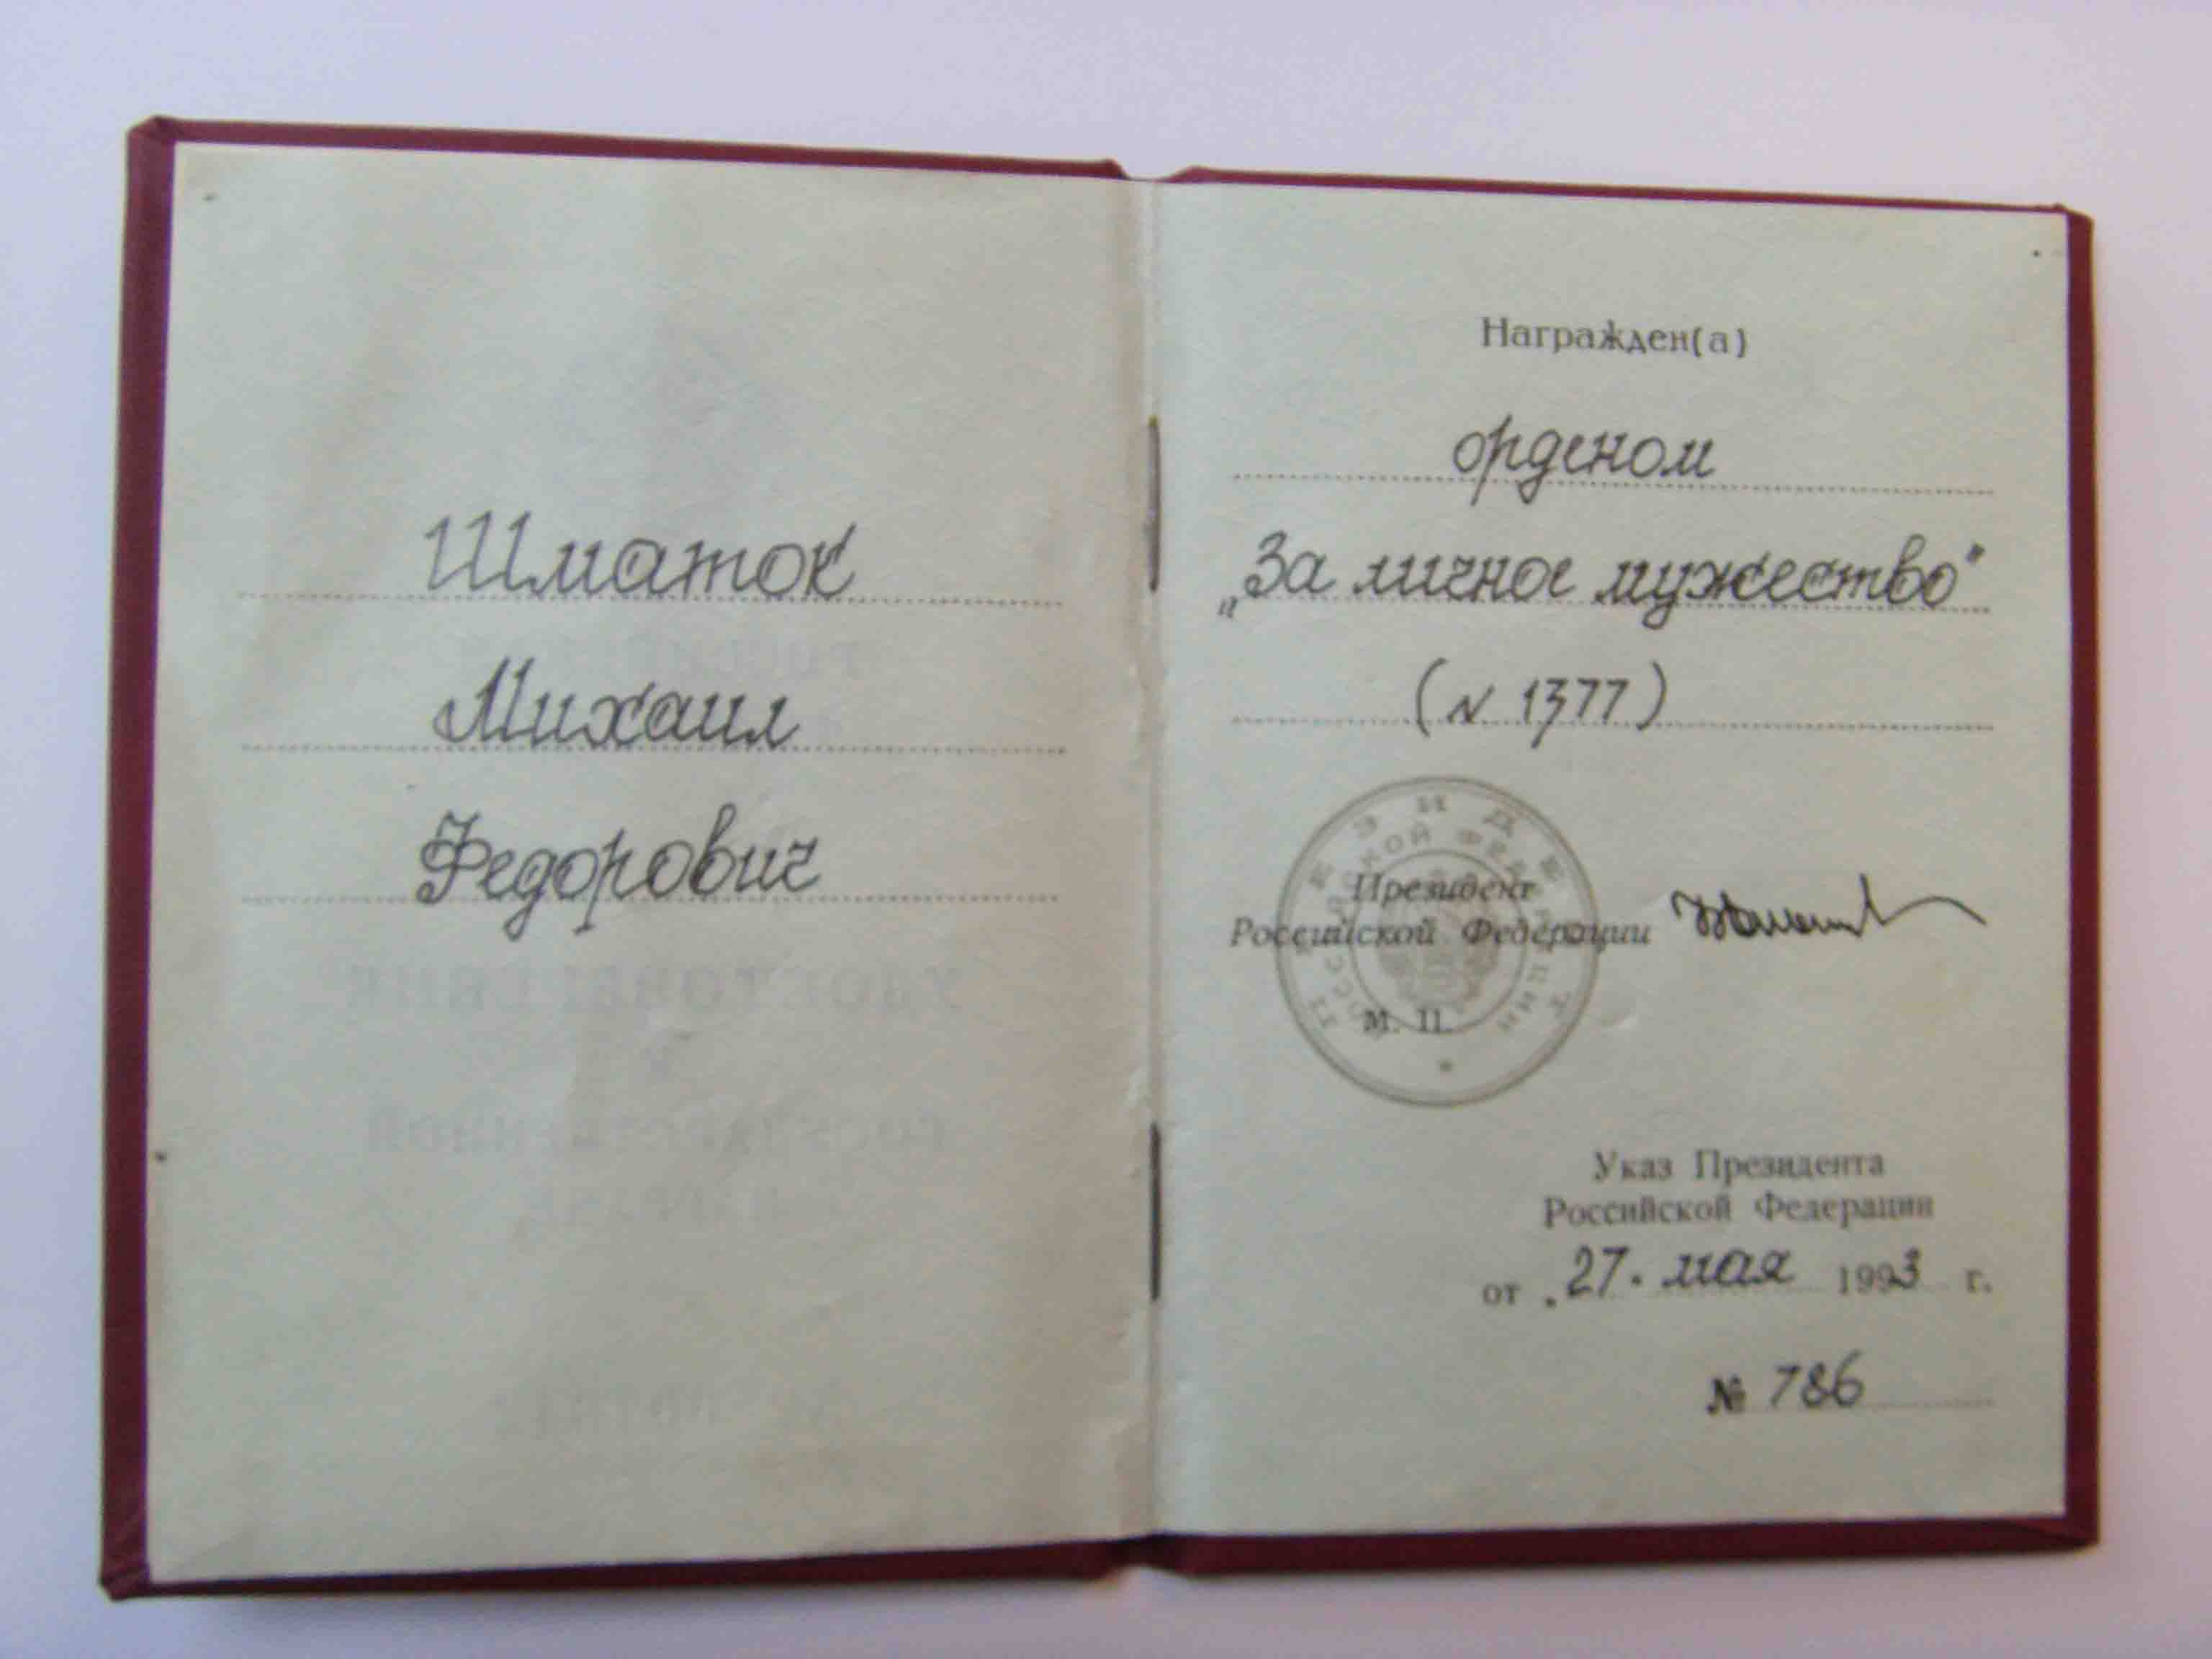 Шматок
Михаил
Федорович
Награжден(а)
орденом
„За личное мужество"
(№ 1377)
ПРЕЗИДЕНТ
РОССИЙСКОЙ ФЕДЕРАЦИИ
Президент
Российской Федерации
М. П.
Указ Президента
Российской Федерации
от „27. мая 1993 г.
№ 786